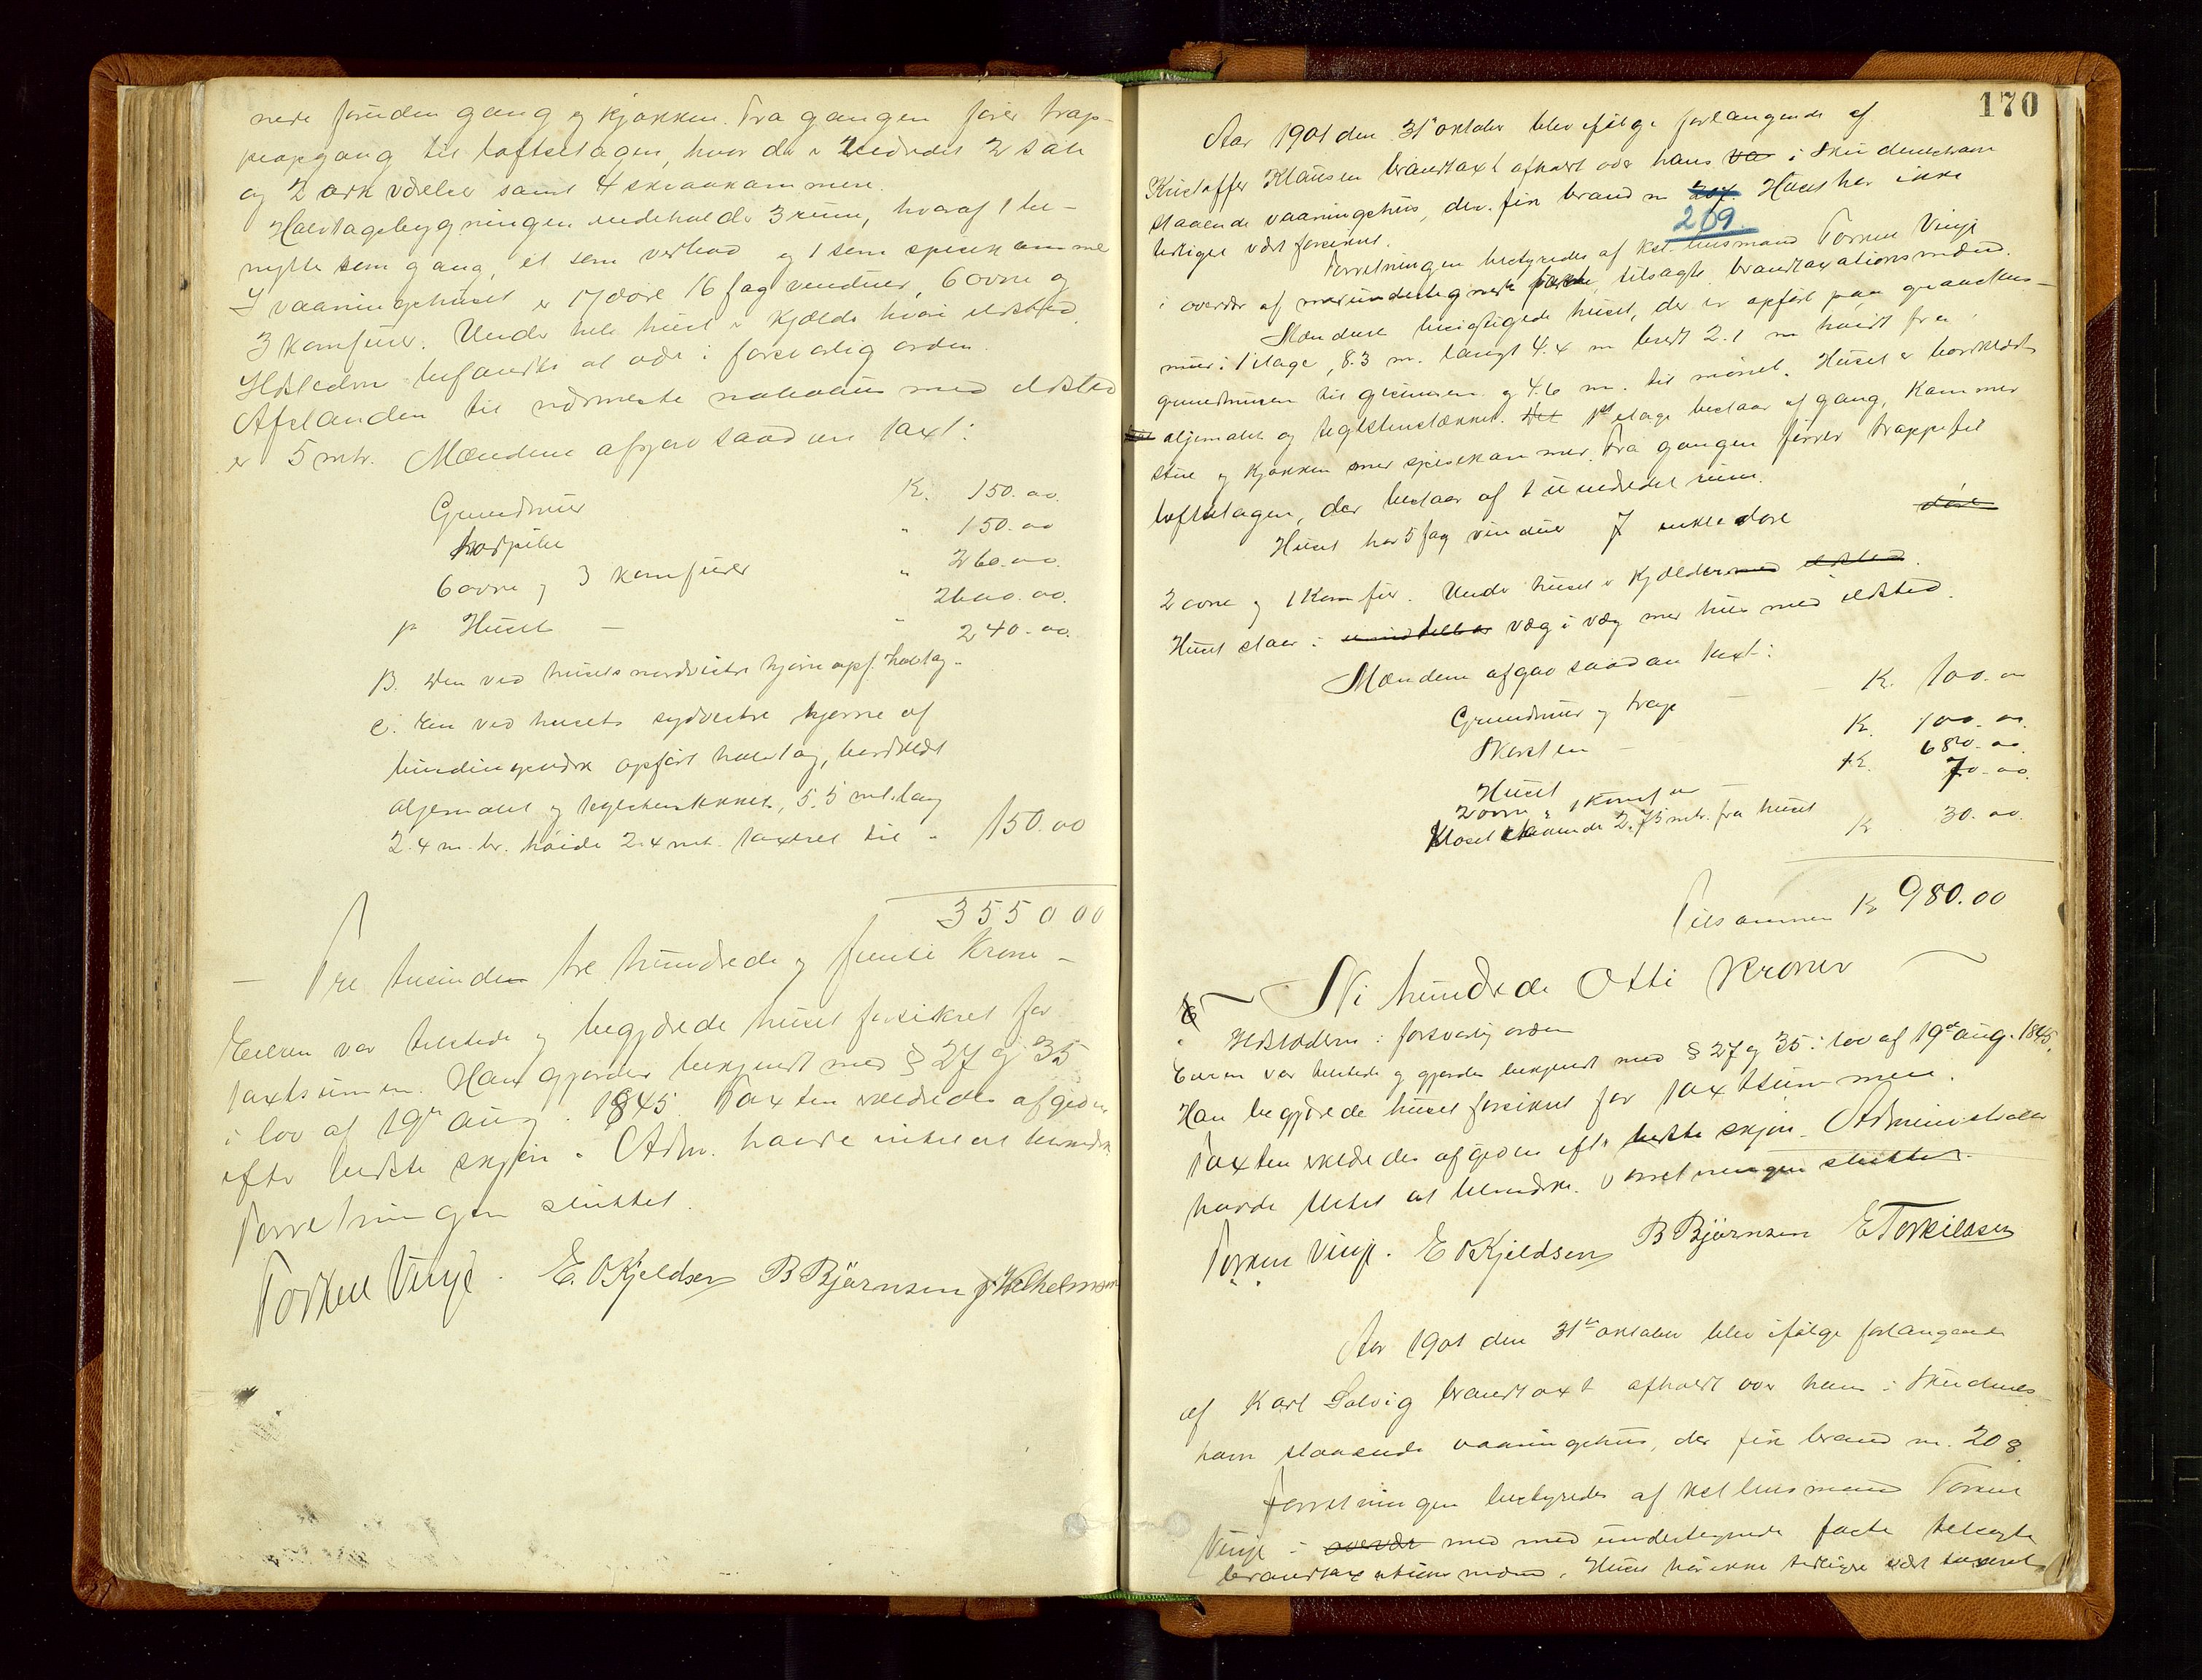 nede foruden gang og kjøkken. Fra gangen fører trap-
peopgang til loftsetagen, hvor der er indredet 2 sale
og 2 ark værelser samt 4 skraakammere.
Halvtagsbygningen indeholder 3 rum, hvoraf 1 be-
nyttes som gang, et som vedbod og 1 som spisekammer
I vaaningshuset er 17 døre 16 fag vinduer, 6 ovne og
3 komfurer. Under hele huset er kjelder hvori ildsted.
Ildstederne befandtes at være i forsvarlig orden.
Afstanden til nærmeste nabohus med ildsted
er 5 mtr. Mændene afgav saadan taxt:
Grundmur K. 150.00
" 150.00
6 ovne og 3 komfurer " 260.00
p Huset — " 2600.00
B. Den ved husets nordvestre hjørne opf. halvtag. 240.00
c. Den ved husets sydvestre hjørne af
bindingsværk opført halvtag, bordklædt
oljemalet og teglstenstækket, 5.5 mtr. lang
2.4 m. br. høide 2.4 mtr. taxeret til " 150.00
3550 00
— Tre tusinde tre hundrede og femti Kroner —
Eieren var tilstede og begjærede huset forsikret for
taxtsummen. Han gjordes bekjendt med § 27 og 35
i lov af 19de aug. 1845. Taxten erklæredes afgiven
efter bedste skjøn. Adm. havde intet at bemærke.
Forretningen sluttet.
Torkel Vinje. E. O Kjeldsen B Bjørnsen J. Wilhelmsen
170
Aar 1901 den 31te oktober blev ifølge forlangende af
Kristoffer Klausen brandtaxt afholdt over hans va i Skudeneshavn
staaende vaaningshus, der fik brand n 207. Huset har ikke
209.
tidligere vært forsikret.
Forretningen bestyredes af kst. lensmand Torkel Vinje
i overvær af undertegnede faste, tilsagte brandtaxationsmænd.
Mændene besigtigede huset, der er opført paa graastens-
mur i 1 etage, 8.3 m. langt 4.4 m bredt 2.1 m høidt fra
grundmuren til gesimsen og 4.6 m. til mønet. Huset er bordklædt
oljemalet og teglstenstækket. Det 1ste etage bestaar af gang, Kammer
stue og kjøkken med spisekammer. Fra gangen fører trappe til
loftsetagen, der bestaar af 1 uindredet rum.
Huset har 5 fag vinduer 7 enkle døre døre
2 ovne og 1 Komfur. Under huset er kjelder med ildsted.
Huset staar i umiddelbar væg i væg med hus med ildsted.
Mændene afgav saadan taxt:
Grundmur og trap — — K. 100.00
Skorsten — K. 100.00
Huset K. 680.00
2 ovne & 1 Komfur — 70.00
Kloset staaende 2.75 mtr. fra huset K 30.00
Tilsammen K 980.00
— Ni hundrede Otti Kroner —
Ildstederne i forsvarlig orden
Eieren var tilstede og gjordes bekjendt med § 27 og 35 i lov af 19de aug. 1845.
Han begjærede huset forsikret for taxtsummen.
Taxten erklæredes afgiven efter bedste skjøn. Administrator
havde intet at bemærke. Forretningen sluttet.
Torkel Vinje. E O Kjeldsen B Bjørnsen E Torkildsen
Aar 1901 den 31te oktober blev ifølge forlangende
af Karl Solvig brandtaxt afholdt over hans i Skudenes-
havn staaende vaaningshus, der fik brand nr. 208
Forretningen bestyredes af kst lensmand Torkel
Vinje i overvær med med undertegnede faste tilsagte
brandtaxationsmænd. Huset har ikke tidligere vært taxeret